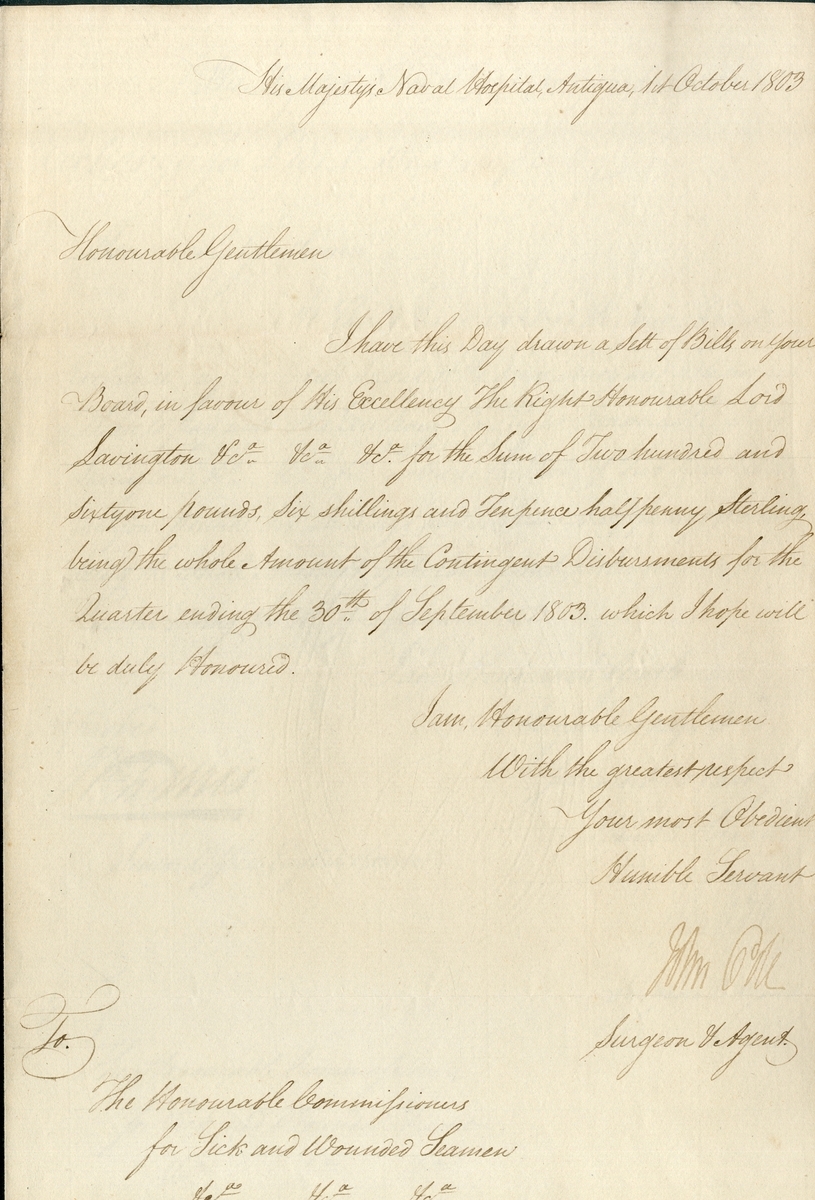 His Majestys Naval Hospital, Antigua, 1st October 1803
Honourable Gentlemen
I have this Day drawn a Sett of Bills on your
Board, in favour of His Excellency The Right Honourable Lord
Lavington &ca &ca &ca for the Sum of Two hundred and
sixtyone pounds, six shillings and Tenpence halfpenny Sterling,
being the whole Amount of the Contingent Disbursments for the
Quarter ending the 30th of September 1803. which I hope will
be duly Honoured.
I am, Honourable Gentlemen
With the greatest respect
Your most Obedient
Humble Servant
John
Surgeon & Agent.
To.
The Honourable Commissioners
for Sick and Wounded Seamen
&ca &ca &ca